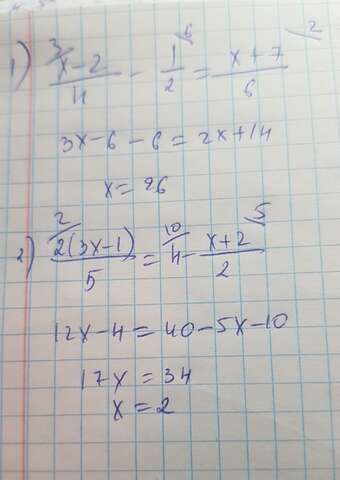 1) (x-2)/4 ³⁄ - 1/2 ⁶⁄ = (x+7)/6 ²⁄
3x-6-6=2x+14
x=26
2) 2(3x-1)/5 ²⁄ = 4 ¹⁰⁄ - (x+2)/2 ⁵⁄
12x-4=40-5x-10
17x=34
x=2